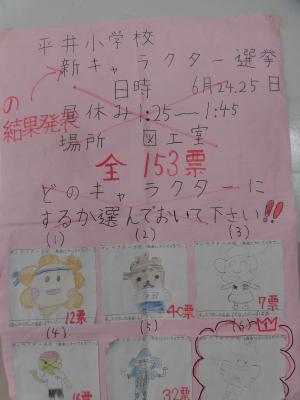 平井小学校
新キャラクター選挙
の結果発表
日時 6月24.25日
昼休み1:25―1:45
場所 図工室
全153票
どのキャラクターに
するか選んでおいて下さい!!
(1) (2) (3)
12票 40票 7票
(4) (5) (6)
16票 32票